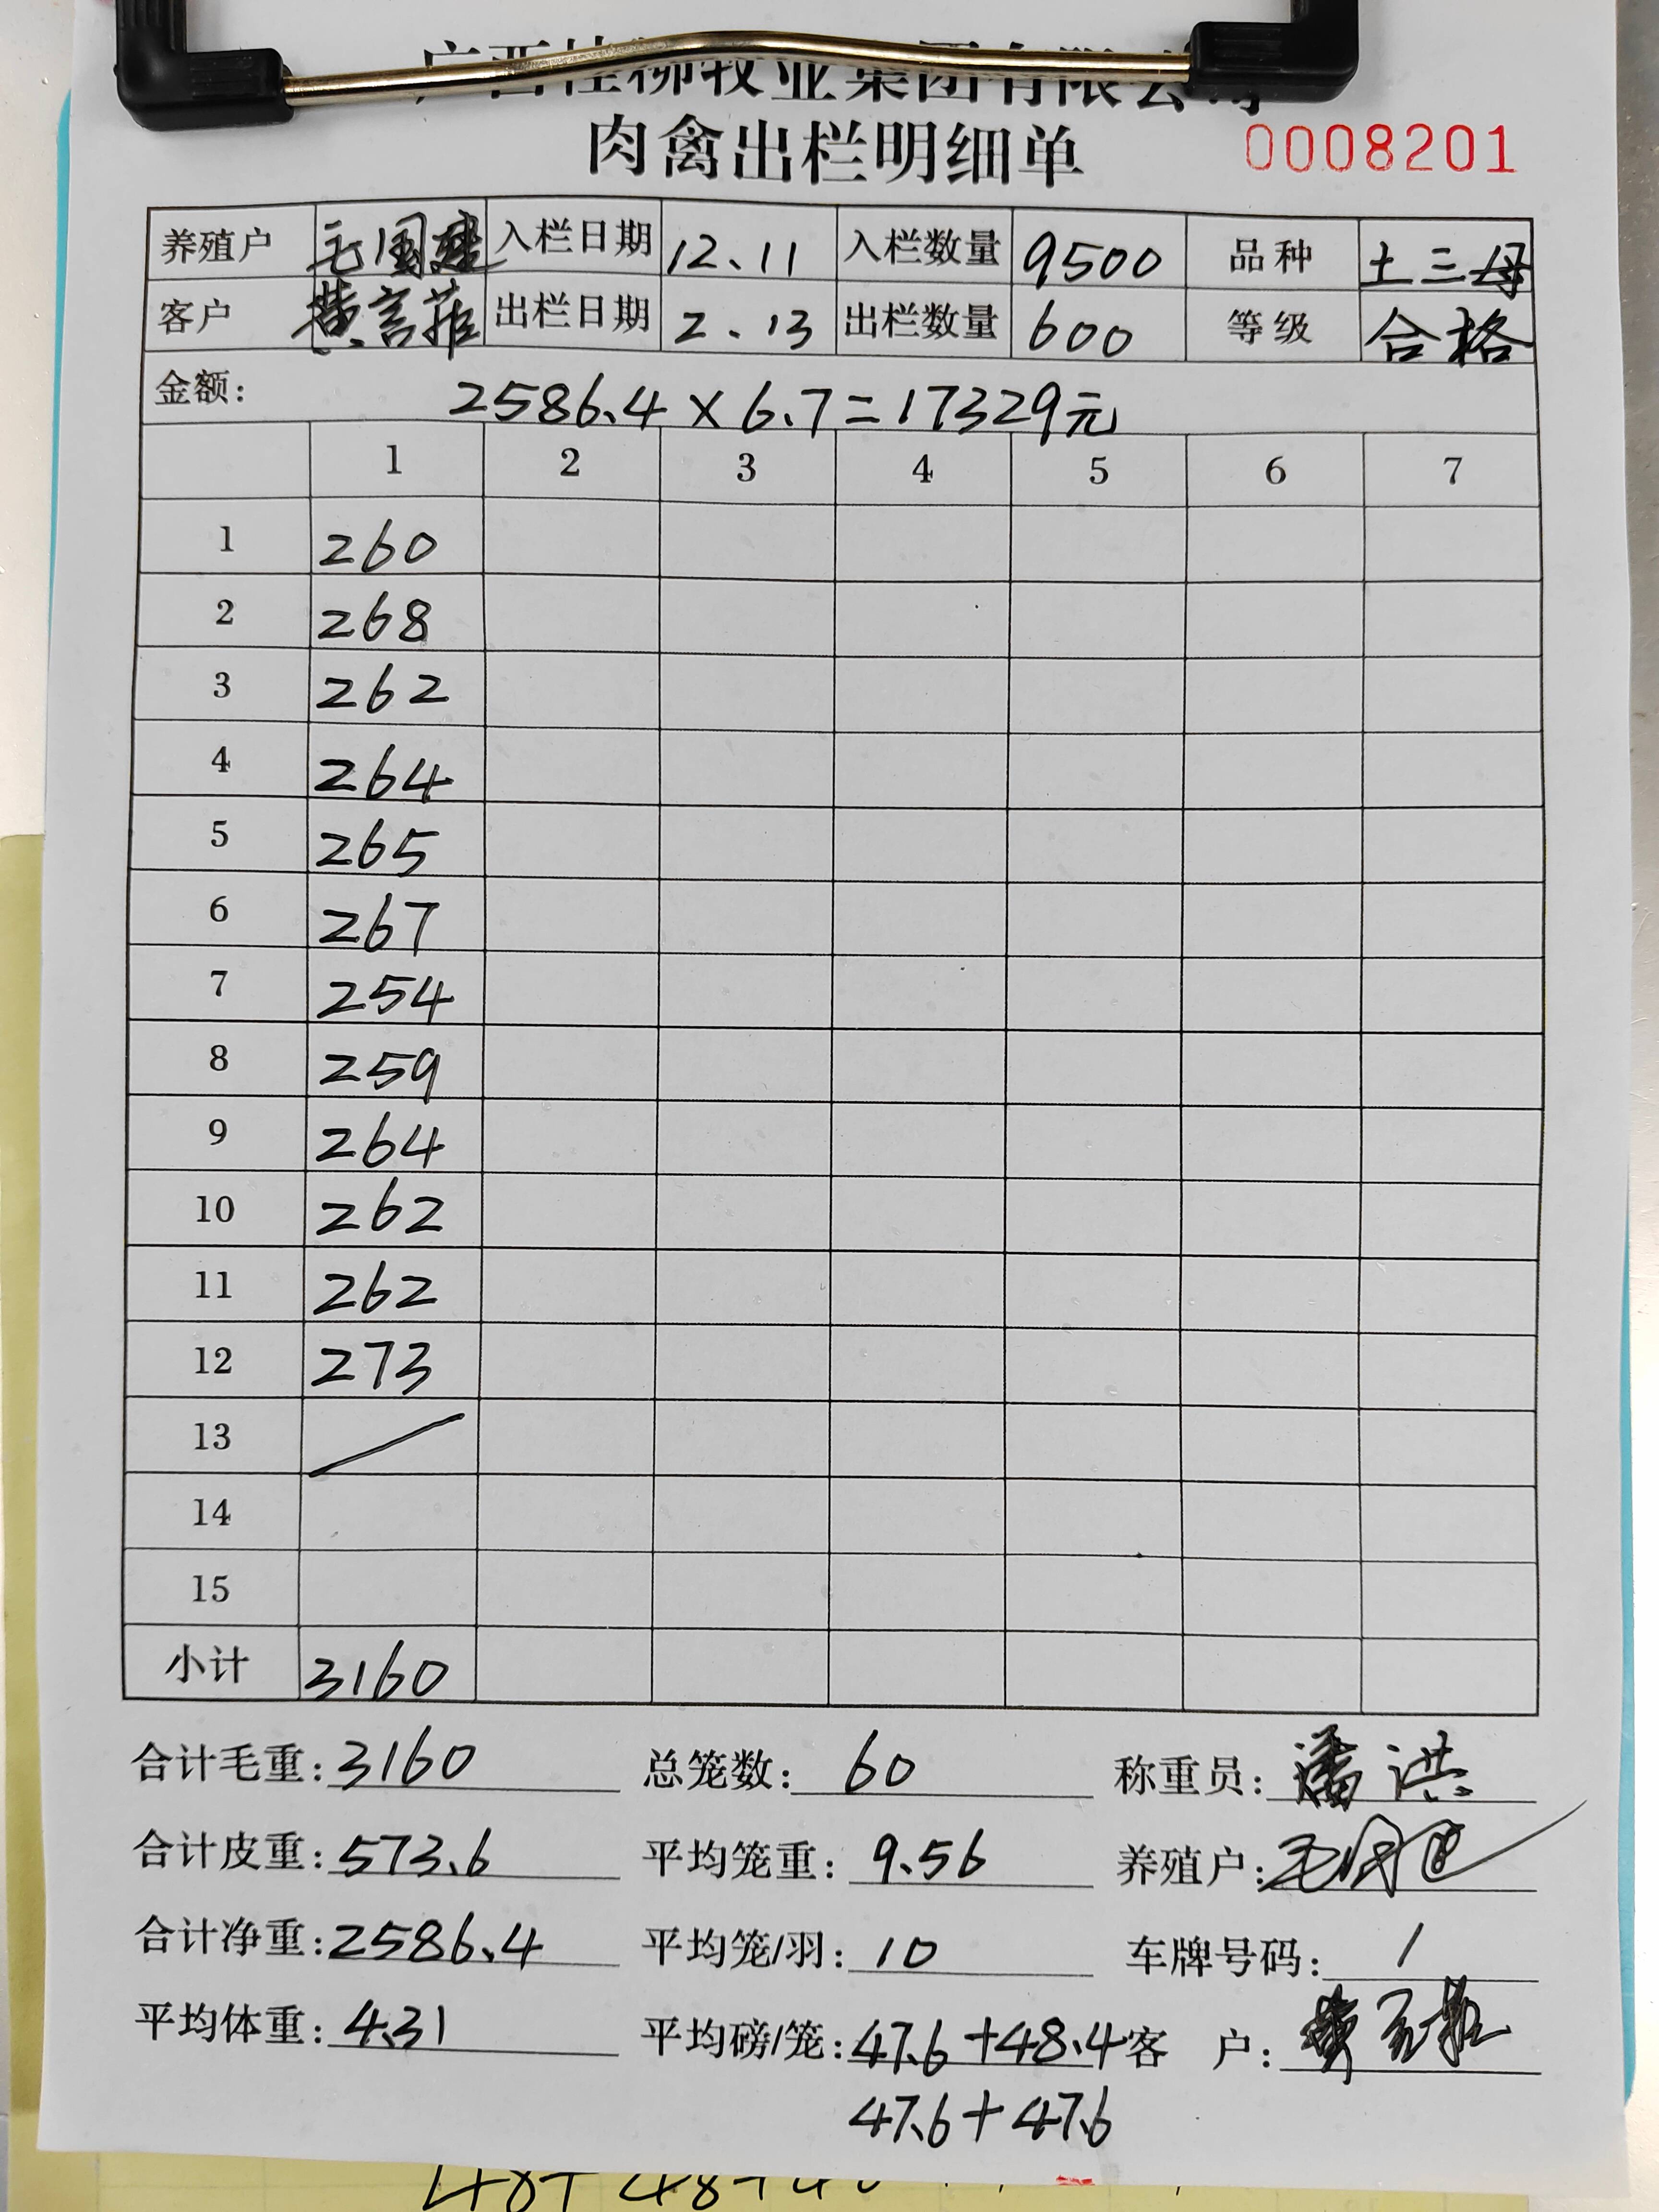 广西桂柳牧业集团有限公司
肉禽出栏明细单 0008201
养殖户 毛国建 入栏日期 12.11 入栏数量 9500 品种 土三母
客户 黄言菲 出栏日期 2.13 出栏数量 600 等级 合格
金额: 2586.4×6.7=17329元
1 2 3 4 5 6 7
1 260
2 268
3 262
4 264
5 265
6 267
7 254
8 259
9 264
10 262
11 262
12 273
13 /
14
15
小计 3160
合计毛重:3160 总笼数:60 称重员:潘洪
合计皮重:573.6 平均笼重:9.56 养殖户:
合计净重:2586.4 平均笼/羽:10 车牌号码:/
平均体重:4.31 平均磅/笼:47.6+48.4 客 户:
47.6+47.6